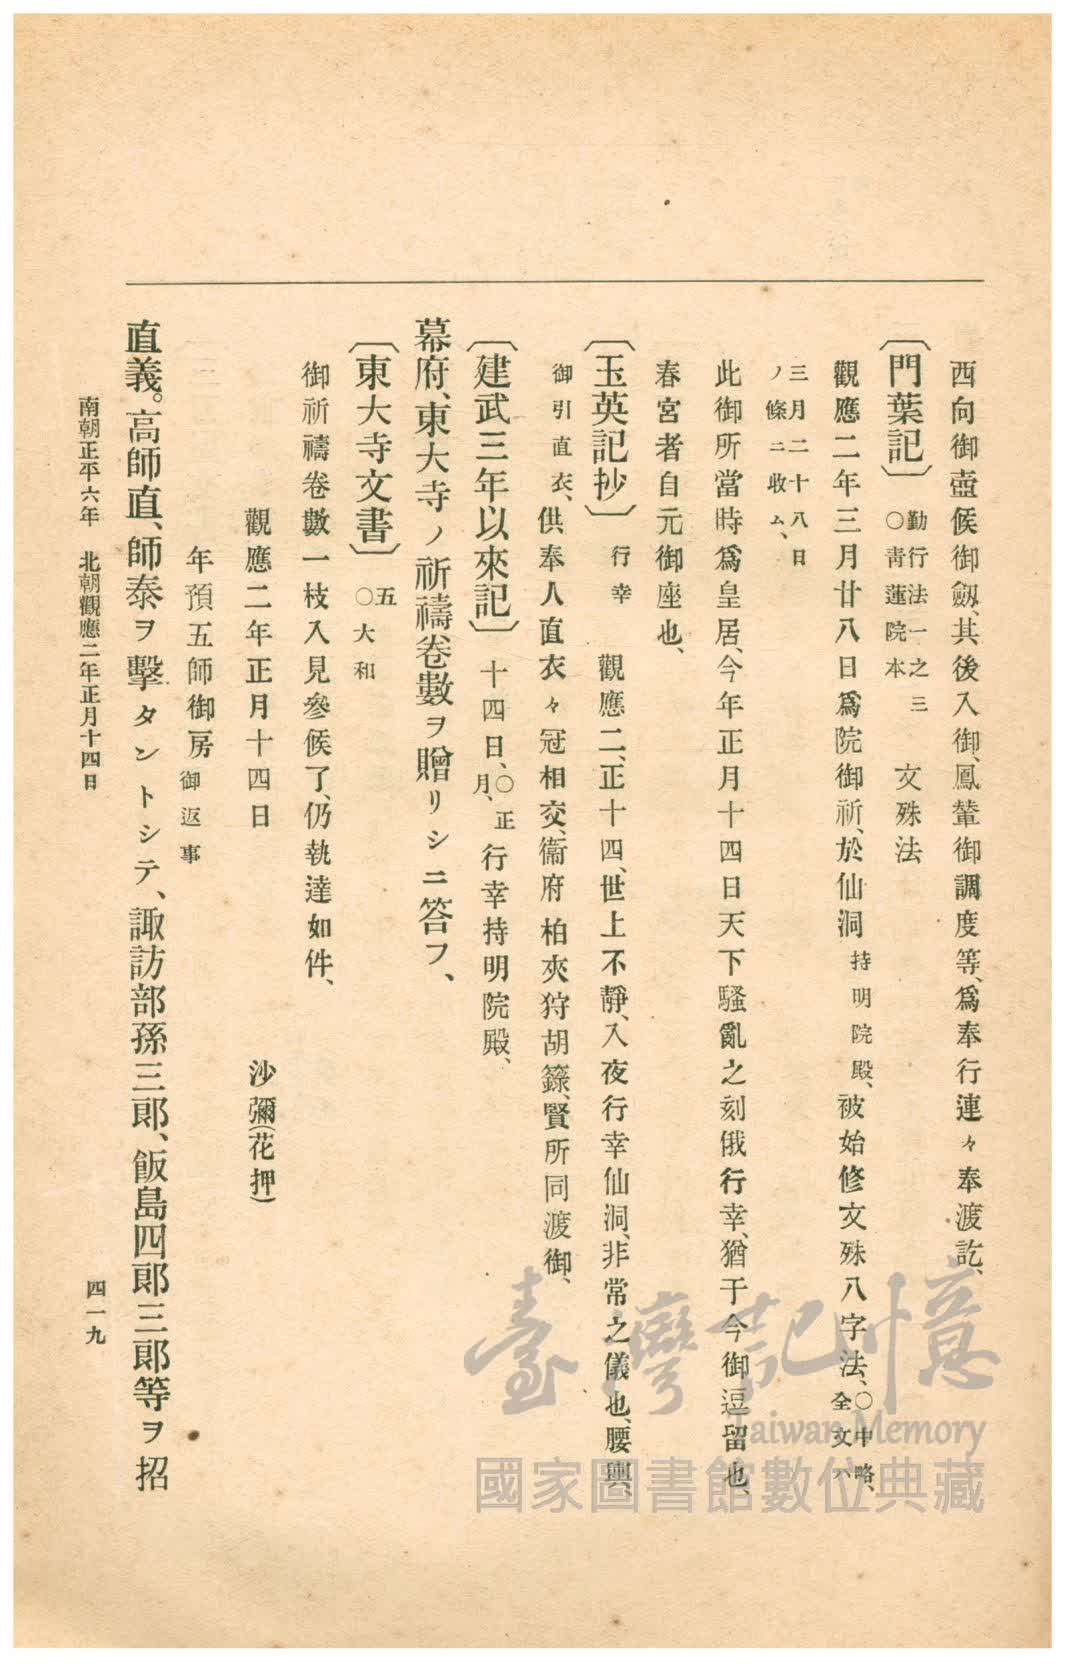 西向御壺候御劔、其後入御、鳳輦御調度等、爲奉行連々奉渡訖、
〔門葉記〕 勤行法一之三 ○青蓮院本 文殊法
觀應二年三月廿八日爲院御祈、於仙洞 持明院殿、 被始修文殊八字法、 ○中略、全文ハ
三月二十八日ノ條ニ收ム、
此御所當時爲皇居、今年正月十四日天下騷亂之刻俄行幸、猶于今御逗留也、
春宮者自元御座也、
〔玉英記抄〕 行幸 觀應二、正十四、世上不靜、入夜行幸仙洞、非常之儀也、腰輿、
御引直衣、 供奉人直衣々冠相交、衞府柏夾狩胡籙、賢所同渡御、
〔建武三年以來記〕 十四日、 ○正月、 行幸持明院殿、
幕府、東大寺ノ祈禱卷數ヲ贈リシニ答フ、
〔東大寺文書〕 五 ○大和
御祈禱卷數一枝入見參候了、仍執達如件、
觀應二年正月十四日 沙彌(花押)
年預五師御房 御返事
直義。高師直、師泰ヲ擊タントシテ、諏訪部孫三郞、飯島四郞三郞等ヲ招
南朝正平六年 北朝觀應二年正月十四日
四一九
臺灣記憶
Taiwan Memory
國家圖書館數位典藏